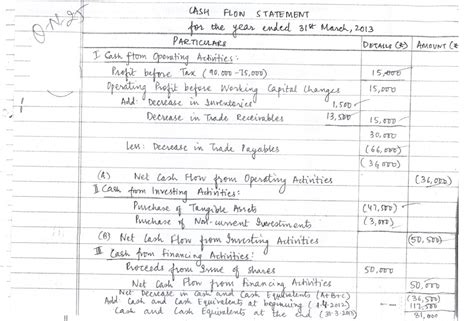 Q N. 25
CASH FLOW STATEMENT
for the year ended 31st March, 2013
PARTICULARS DETAILS (₹) AMOUNT (₹
I. Cash from Operating Activities:
Profit before Tax (90,000-75,000) 15,000
Operating Profit before Working Capital Changes 15,000
Add: Decrease in Inventories 1,500
Decrease in Trade Receivables 13,500 15,000
30,000
Less: Decrease in Trade Payables (66,000)
(36,000)
(A) Net Cash Flow from Operating Activities (36,000)
II Cash from Investing Activities:
Purchase of Tangible Assets (47,500)
Purchase of Non-current Investments (3,000)
(B) Net Cash Flow from Investing Activities (50,500)
III Cash from Financing Activities:
Proceeds from Issue of Shares 50,000
Net Cash Flow from Financing Activities 50,000
Net Decrease in Cash and Cash Equivalents (A+B+C) -- (36,500)
Add: Cash and Cash Equivalents at beginning (1.4.2012) 117,500
Cash and Cash Equivalents at the end (31.3.2013) 81,000